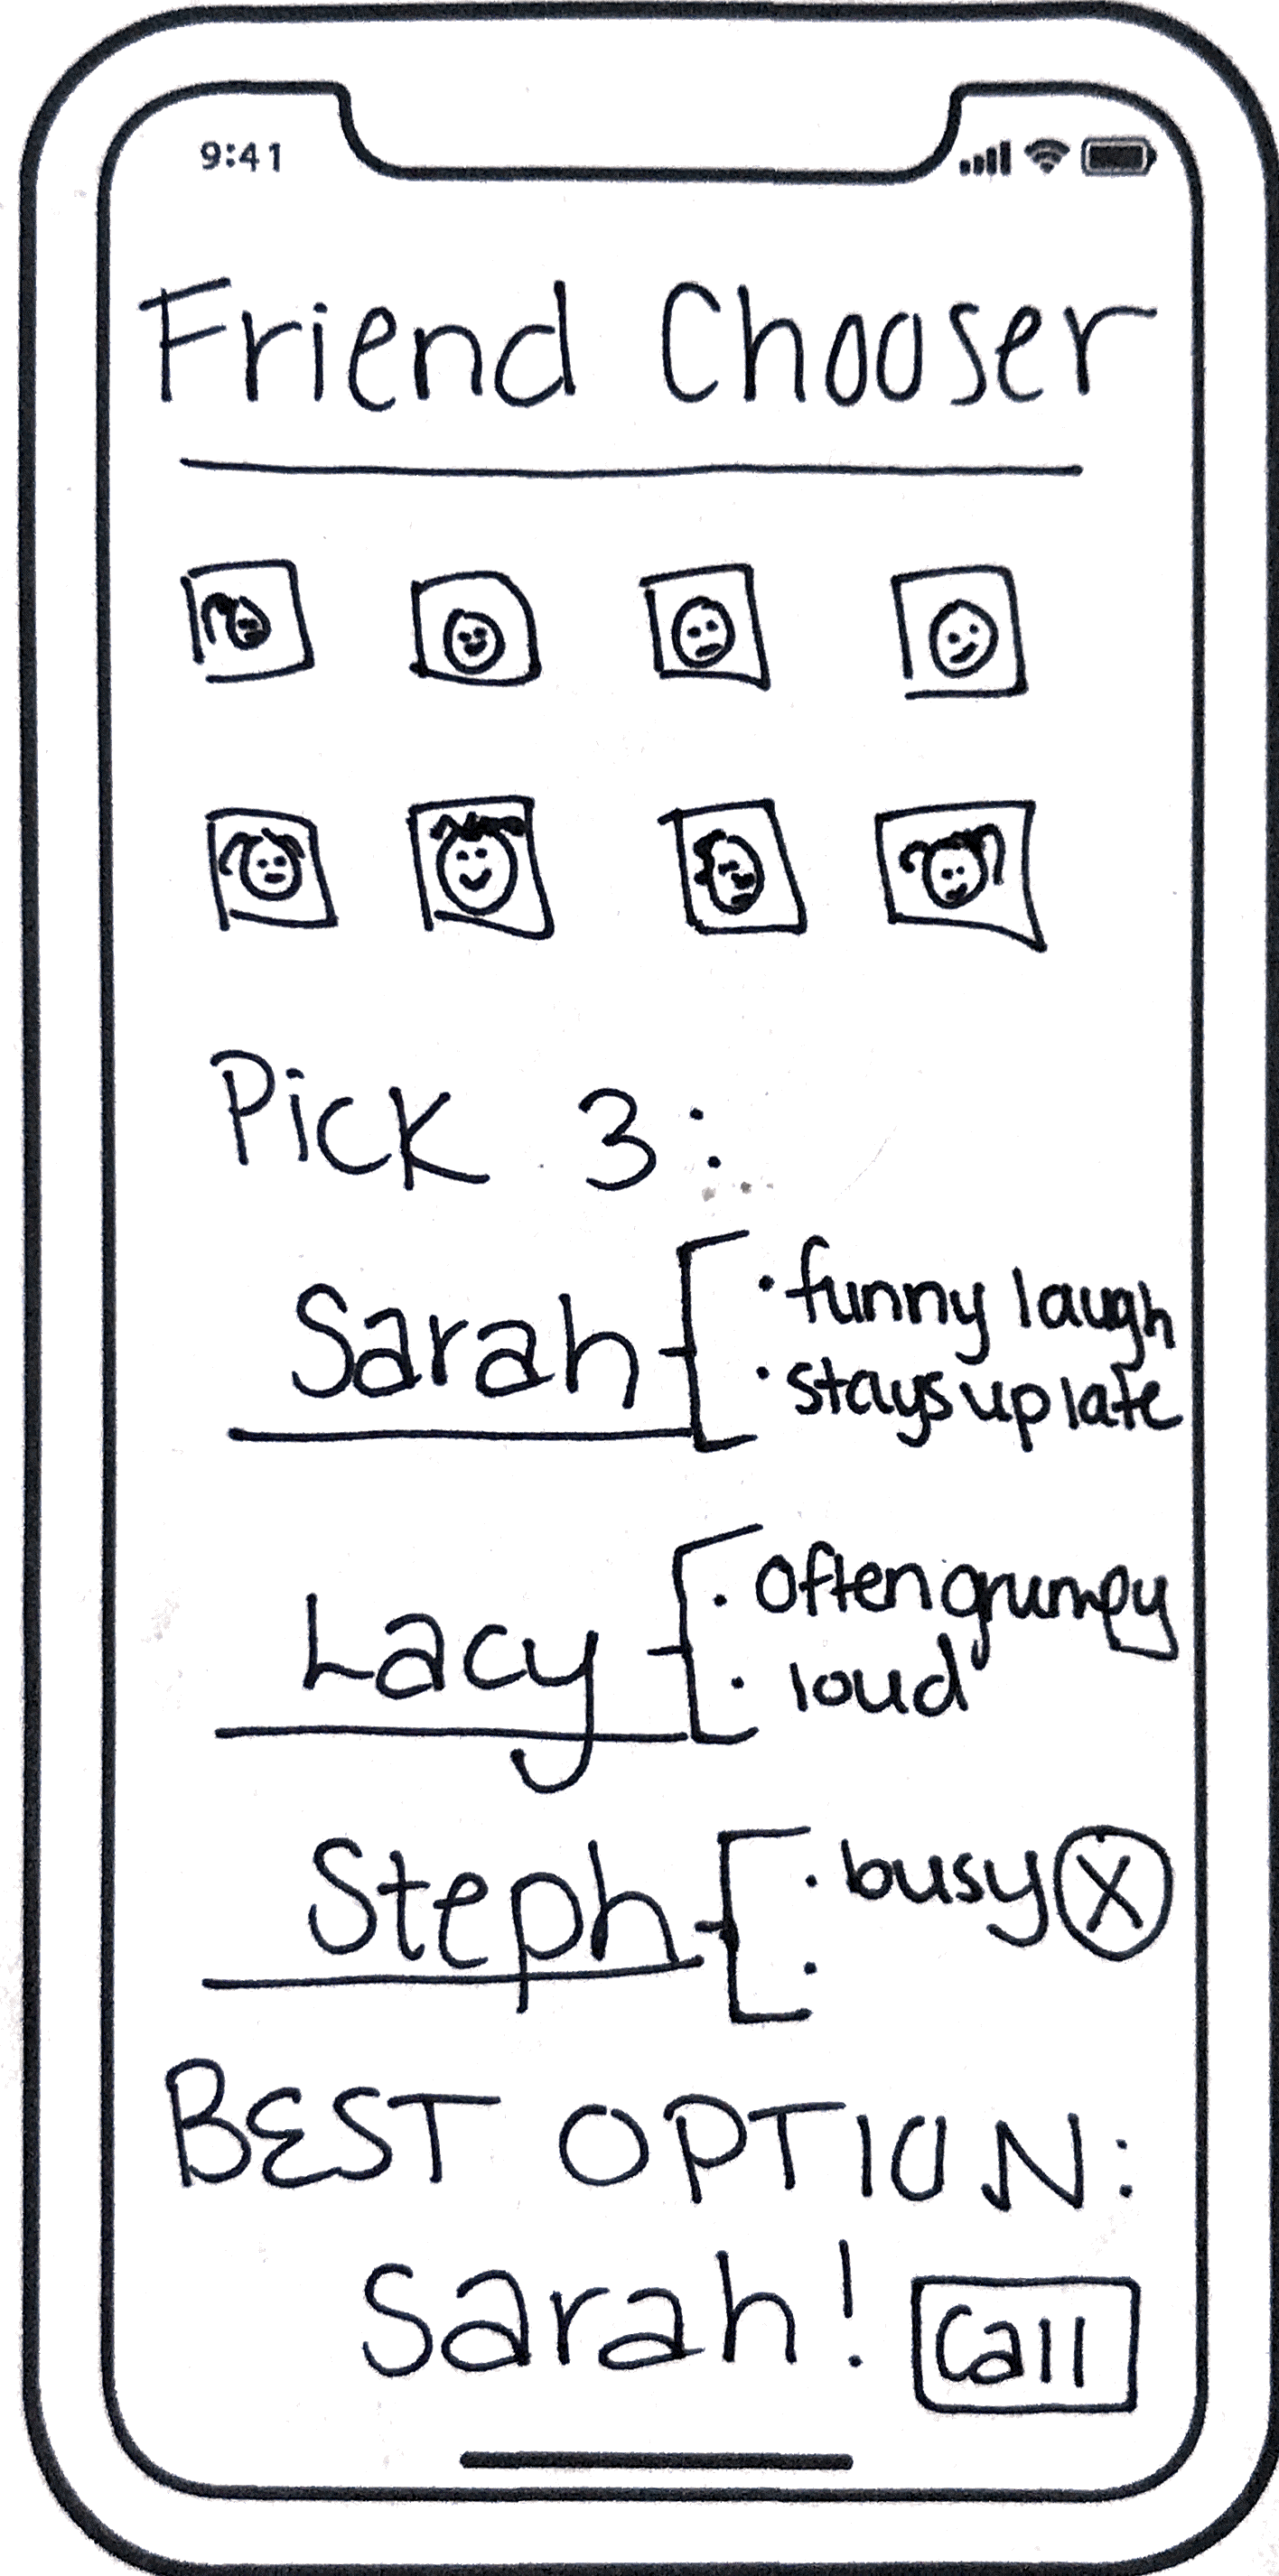 9:41
Friend Chooser
Pick 3:
Sarah
• funny laugh
• stays up late
Lacy
• Often grumpy
• loud
Steph
• busy X
•
BEST OPTION:
Sarah!
Call